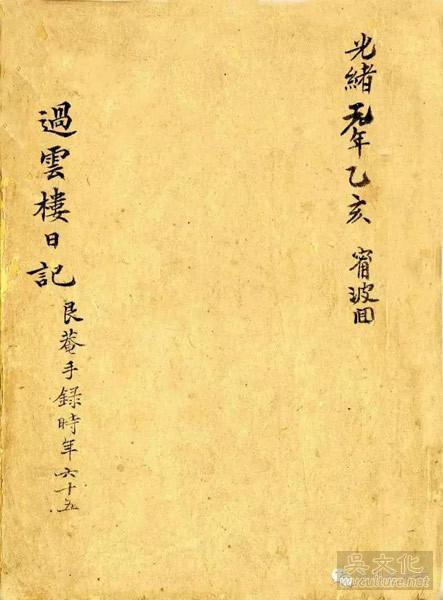 光緒元年乙亥 甯波回
過雲樓日記
艮菴手錄時年六十五
吳文化
wuculture.net